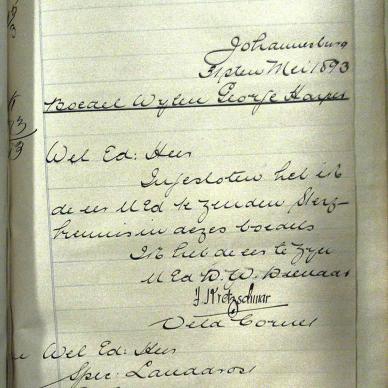 Johannesburg
31sten Mei 1893
Boedel Wylen George Harper
Wel Ed: Heer
Ingesloten heb ik
de eer UEd te zenden Sterf-
kennis in dezes boedels
Ik heb de eer te zyn
UEd D. W. Dienaar
J. Kretzschmar
Veld Cornet
Wel Ed: Heer
Spec: Landdrost